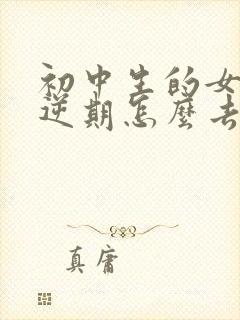 初中生的女
逆期怎麼去
真庸